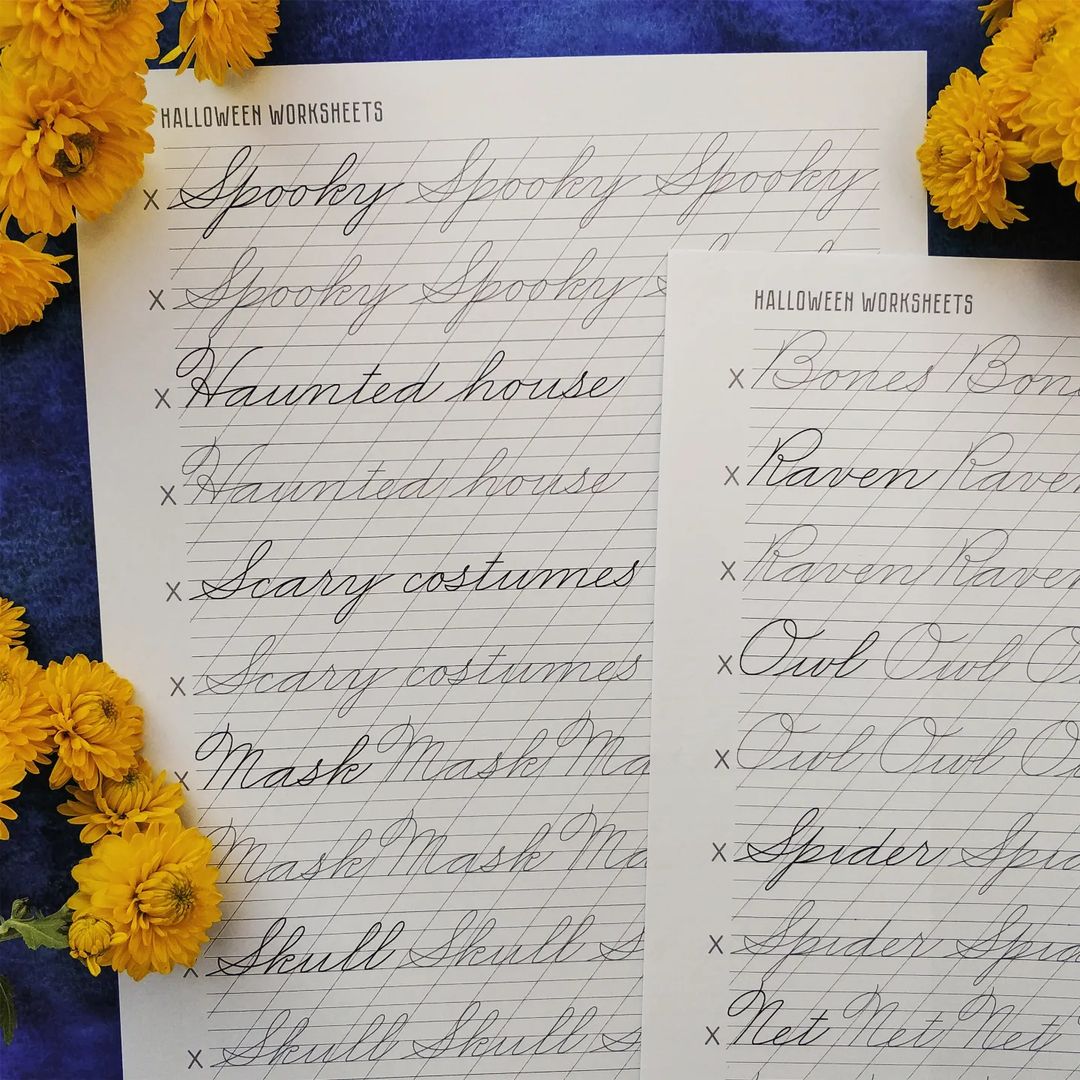 HALLOWEEN WORKSHEETS
x Spooky Spooky Spooky
x Spooky Spooky
x Haunted house
x Haunted house
x Scary costumes
x Scary costumes
x Mask Mask Ma
Mask Mask Ma
x Skull Skull S
x Skull Skull S
HALLOWEEN WORKSHEETS
x Bones Bon
x Raven Raven
x Raven Raven
x Owl Owl O
x Owl Owl O
x Spider Spid
x Spider Spid
x Net Net Net